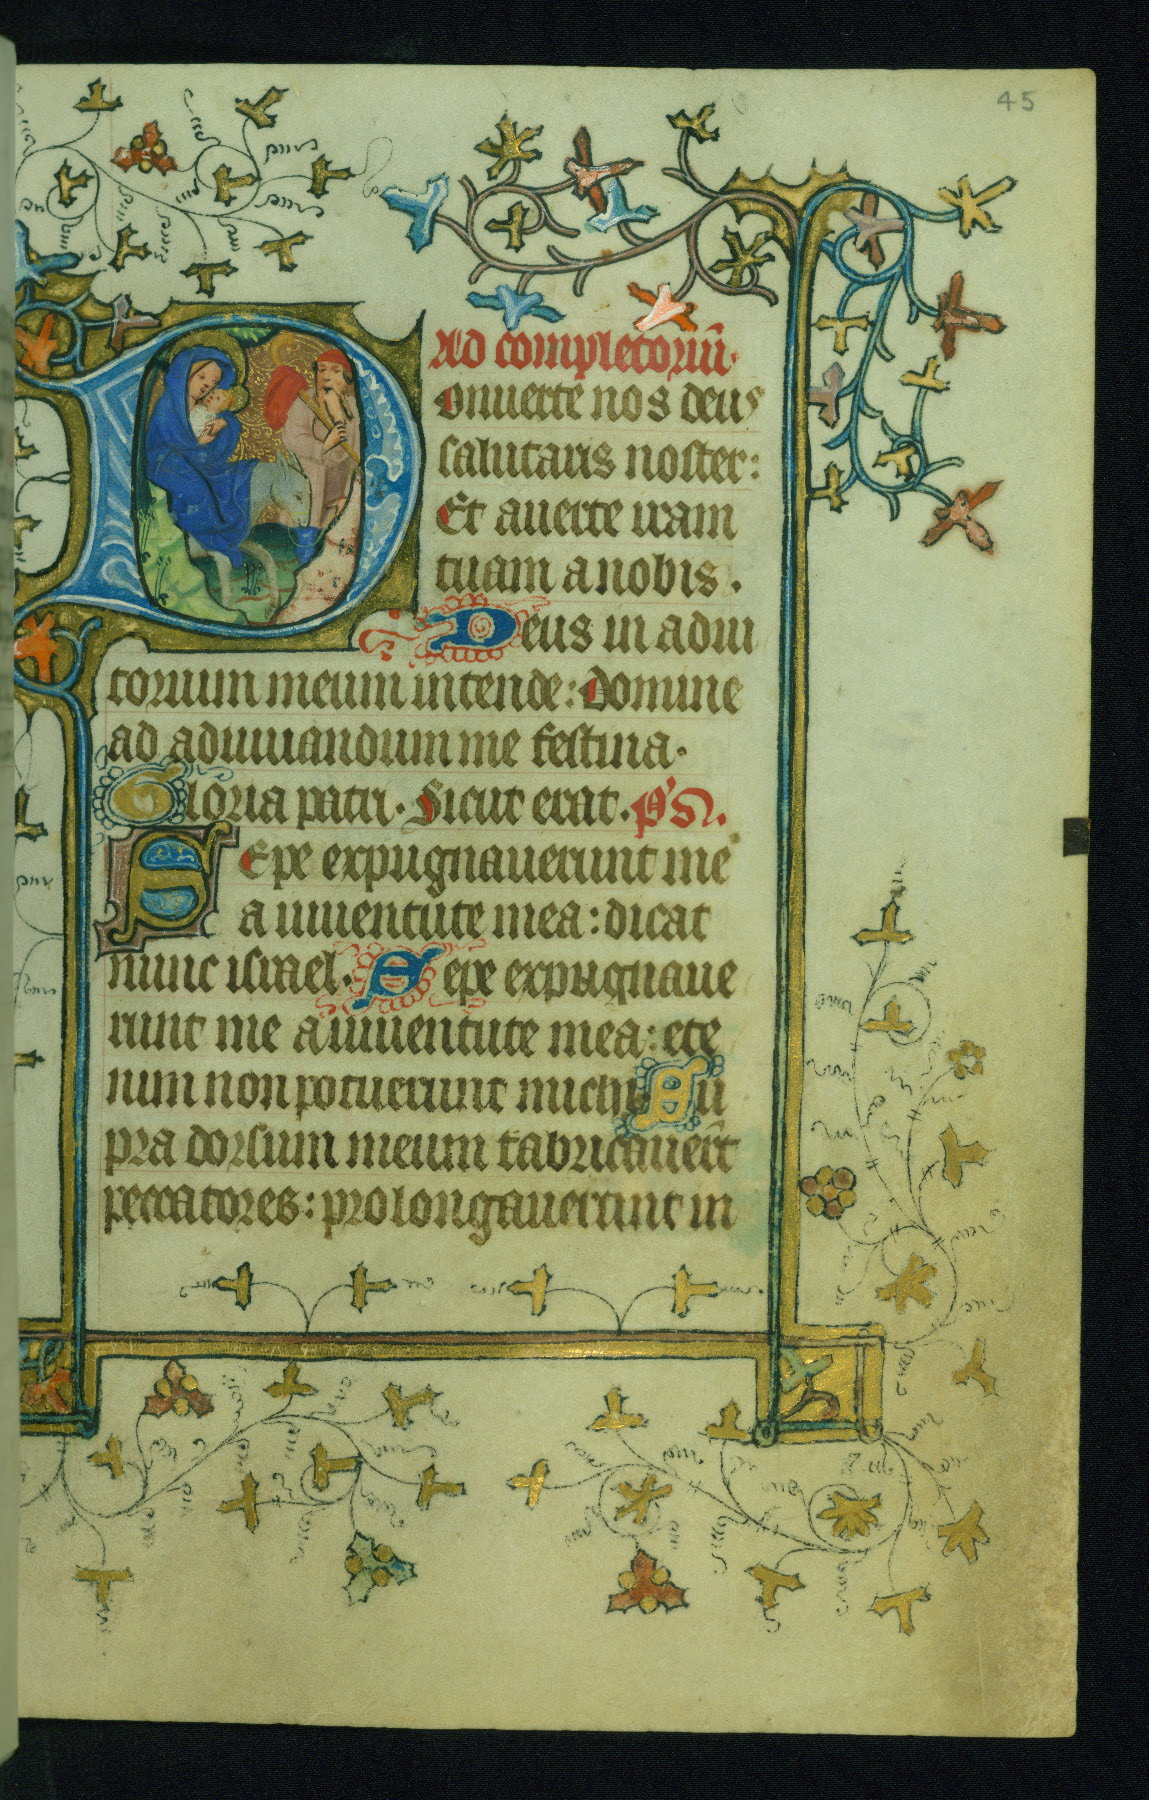 45
Ad completoriū.
Conuerte nos deus
salutaris noster:
Et auerte iram
tuam a nobis.
Deus in adiu
torium meum intende: Domine
ad adiuuandum me festina.
Gloria patri. Sicut erat. Ps.
Sepe expugnauerunt me
a iuuentute mea: dicat
nunc israel. Sepe expugnaue
runt me a iuuentute mea: ete
nim non potuerunt michi Su
pra dorsum meum fabricauerūt
peccatores: prolongauerunt in